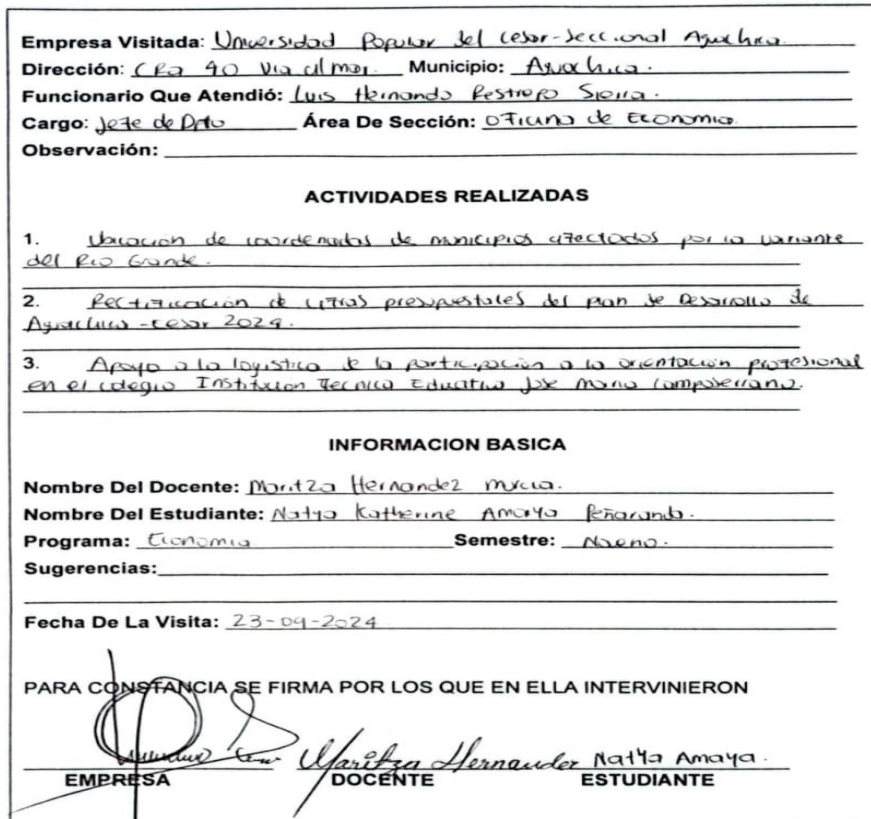 Empresa Visitada: Universidad Popular del cesar-Seccional Aguachica.
Dirección: CRa 40 Via al mar. Municipio: Aguachica.
Funcionario Que Atendió: Luis Hernando Restrepo Sierra.
Cargo: Jefe de Dpto Área De Sección: Oficina de Economia.
Observación:
ACTIVIDADES REALIZADAS
1. Ubicación de coordenadas de municipios afectados por la variante
del Rio Grande.
2. Rectificación de cifras presupuestales del plan de Desarrollo de
Aguachica - cesar 2024.
3. Apoyo a la logistica de la participación a la orientación profesional
en el colegio Institucion Tecnica Educativa Jose Maria Campo Serrano.
INFORMACION BASICA
Nombre Del Docente: Maritza Hernandez Murcia.
Nombre Del Estudiante: Natya Katherine Amaya Peñaranda.
Programa: Economia Semestre: Noveno.
Sugerencias:
Fecha De La Visita: 23-09-2024
PARA CONSTANCIA SE FIRMA POR LOS QUE EN ELLA INTERVINIERON
Maritza Hernandez Natya Amaya.
EMPRESA DOCENTE ESTUDIANTE